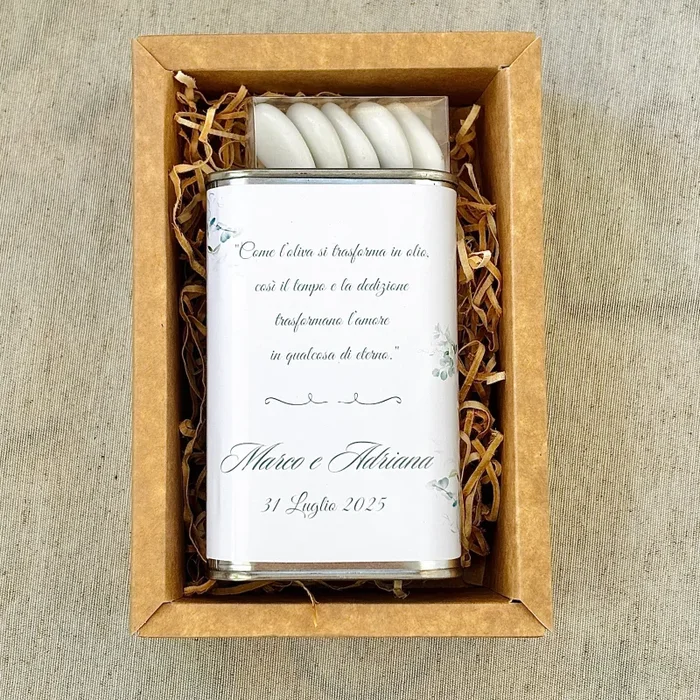 "Come l'oliva si trasforma in olio,
così il tempo e la dedizione
trasformano l'amore
in qualcosa di eterno."
Marco e Adriana
31 Luglio 2025